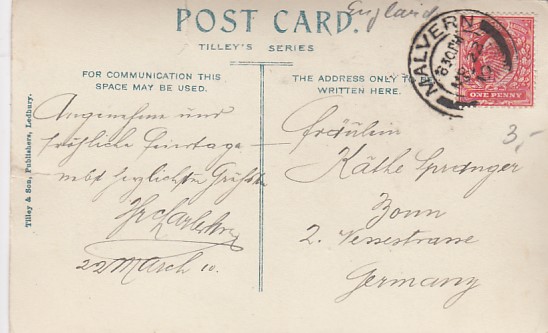 England
POST CARD.
TILLEY'S SERIES
FOR COMMUNICATION THIS
SPACE MAY BE USED.
THE ADDRESS ONLY TO BE
WRITTEN HERE.
MALVERN
8 30 PM
10
ONE PENNY
3,-
Tilley & Son, Publishers, Ledbury.
Angenehme und
fröhliche Feiertage
nebst herzlichsten Grüßen
22 March 10.
Fräulein
Käthe Spranger
Bonn
2. Venusstrasse
Germany